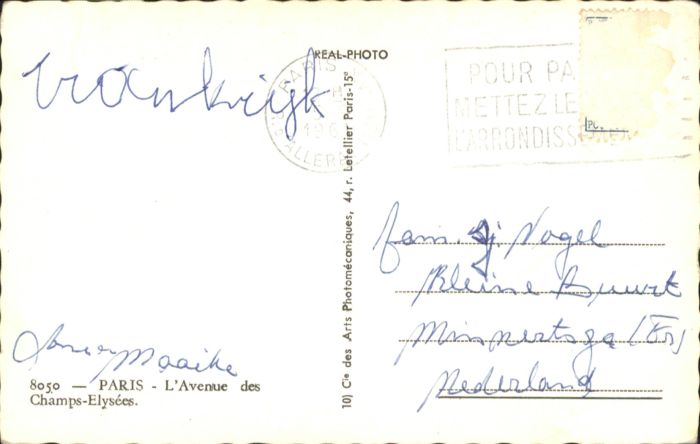 REAL-PHOTO
Frankrijk
PARIS
POUR PA
METTEZ LE
L'ARRONDISS
fam. Sj. Vogel
Kleine Buurt
Minnertsga (Fr)
Nederland
Maaike
8050 — PARIS - L'Avenue des
Champs-Elysées.
10) Cie des Arts Photomécaniques, 44, r. Letellier Paris-15e